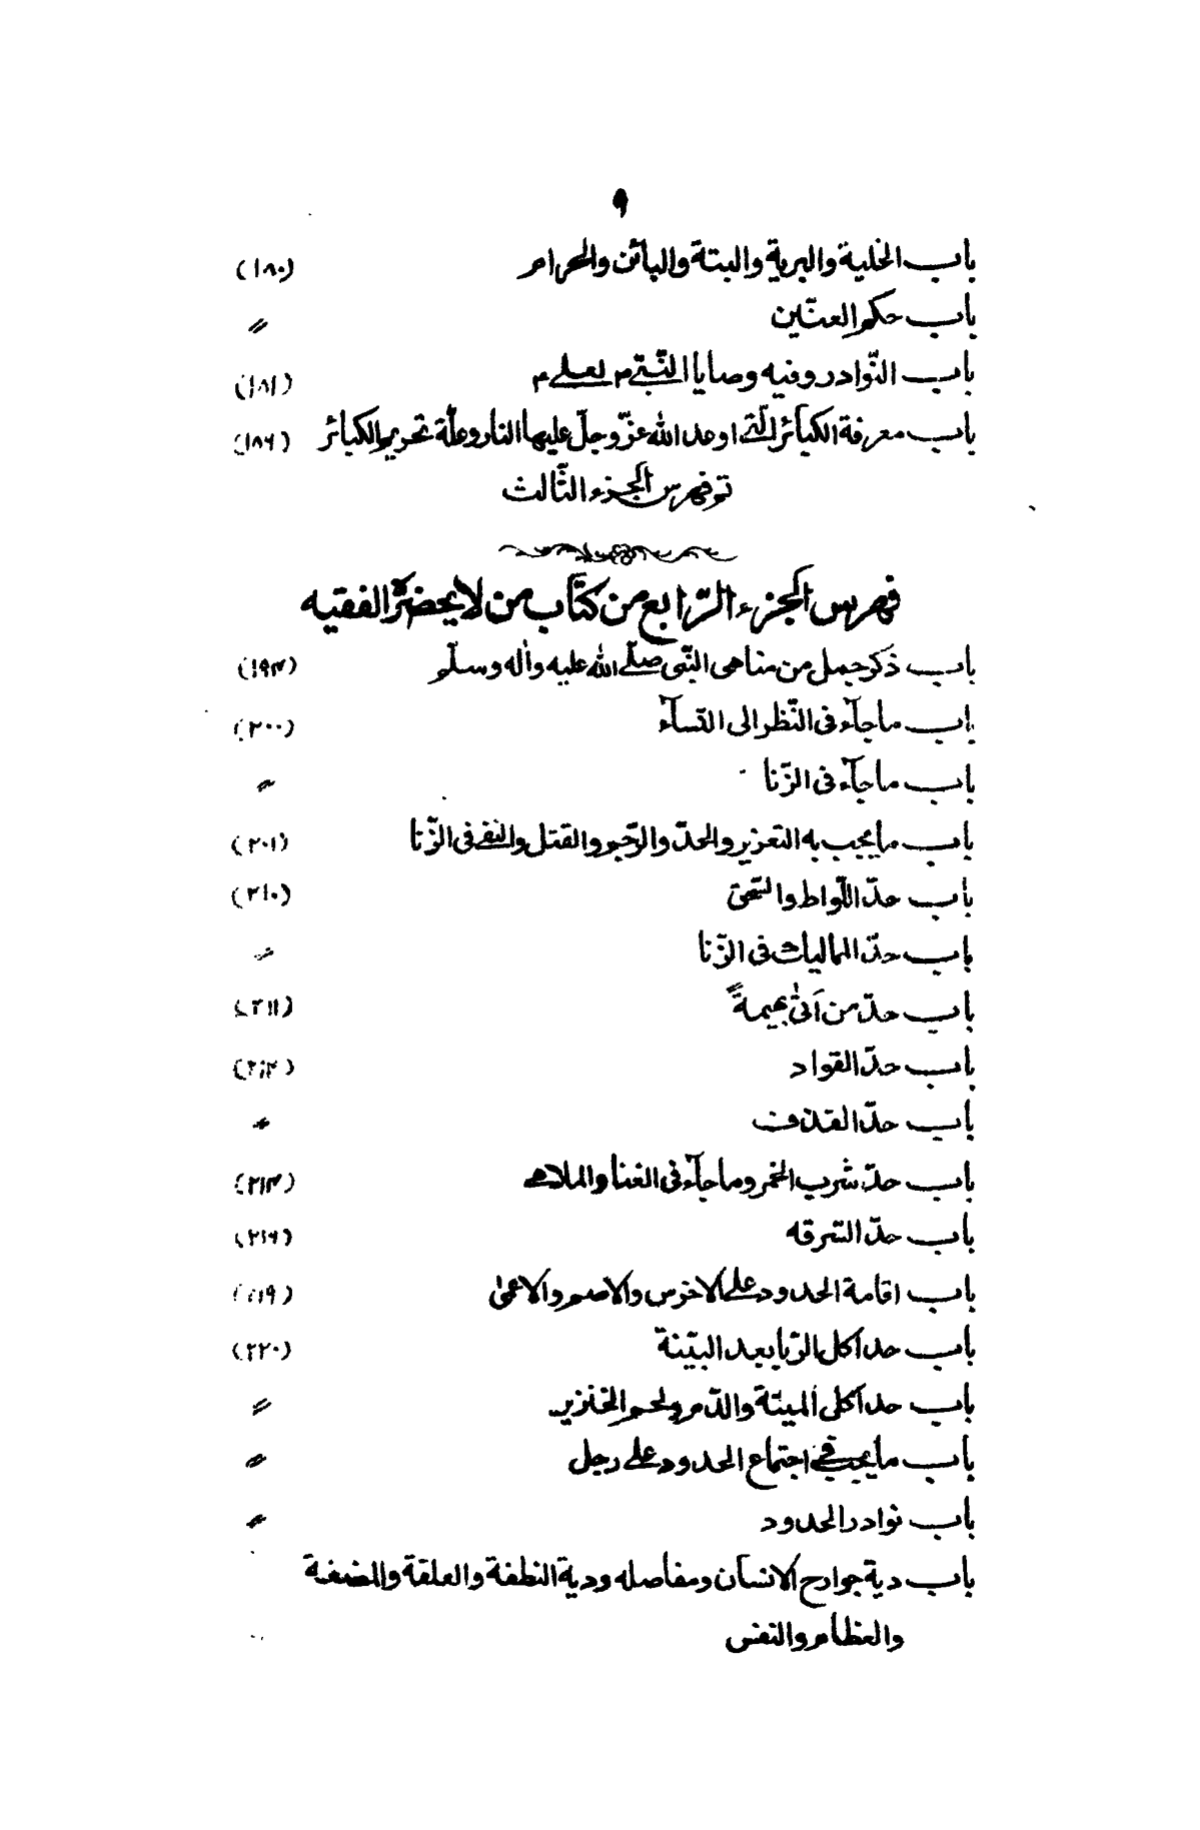 ٩
باب الخلية والبرية والبتة والبائن والحرام (١٨٠)
باب حكم العنّين 〃
باب النّوادر وفيه وصايا النّبيّ م لعلي م (١٨١)
باب معرفة الكبائر الّتي اوعد الله عزّ وجلّ عليها النار وعلّة تحريم الكبائر (١٨٦)
تم فهرس الجزء الثّالث
فهرس الجزء الرّابع من كتاب من لا يحضره الفقيه
باب ذكر جمل من مناهى النّبى صلّى الله عليه واٰله وسلّم (١٩٣)
باب ما جآء فى النّظر الى النّسآء (٢٠٠)
باب ما جآء فى الزّنا 〃
باب ما يجب به التعزير والحدّ والرّجم والقتل والنفى فى الزّنا (٢٠١)
باب حدّ اللّواط والسّحق (٢١٠)
باب حدّ المماليك فى الزّنا 〃
باب حدّ من اَتىٰ بهيمةً (٢١١)
باب حدّ القواد (٢١٢)
باب حدّ القذف 〃
باب حدّ شرب الخمر وما جآء فى الغنا والملاهى (٢١٣)
باب حدّ السّرقه (٢١٦)
باب اقامة الحدود على الاخرس والاصم والاعمىٰ (٢١٩)
باب حد اكل الرّبا بعد البيّنة (٢٢٠)
باب حد اكل الميتة والدّم ولحم الخنزير 〃
باب ما يجب فى اجتماع الحدود على رجل 〃
باب نوادر الحدود 〃
باب دية جوارح الانسان ومفاصله ودية النطفة والعلقة والمضغة
والعظام والنفس